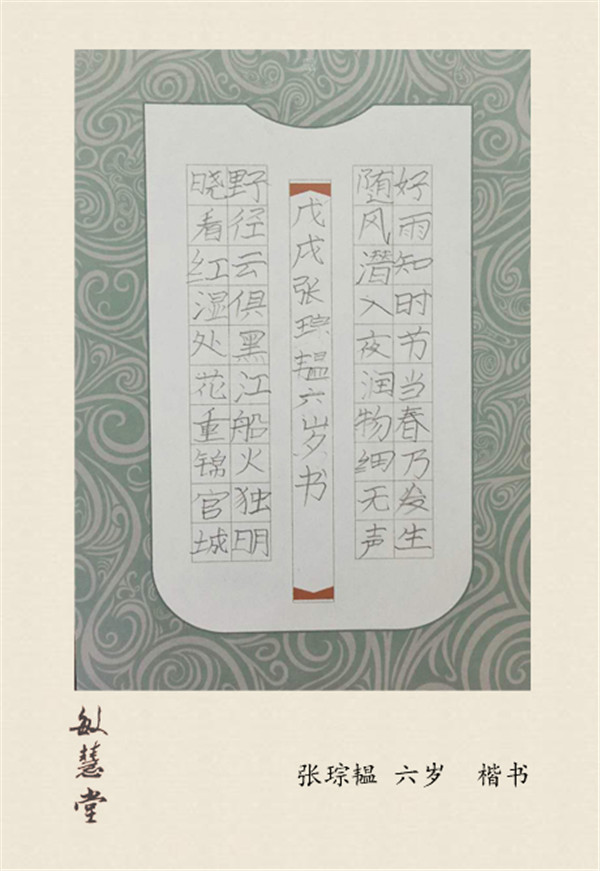 好雨知时节当春乃发生
随风潜入夜润物细无声
戊戌张琮韫六岁书
野径云俱黑江船火独明
晓看红湿处花重锦官城
敏慧堂
张琮韫 六岁 楷书